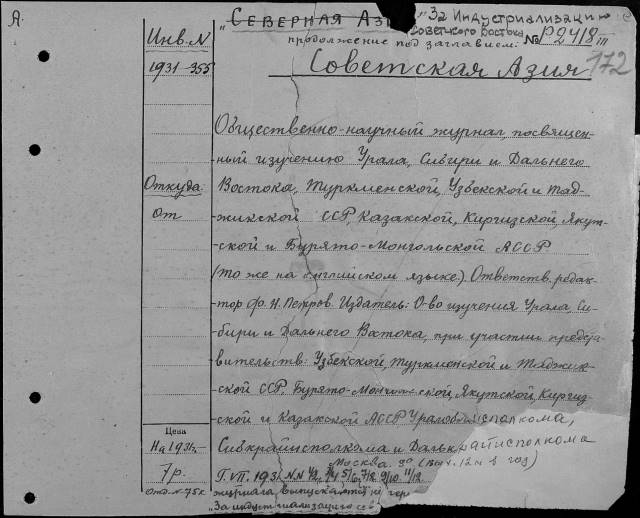 А.
„Северная Азия" „За Индустриализацию
Советского Востока"
продолжение под заглавием: № Р2418 III
Инв. №
1931-355
Советская Азия 172
Общественно-научный журнал, посвящен-
ный изучению Урала, Сибири и Дальнего
Откуда
Востока, Туркменской, Узбекской и Тад-
от
жикской ССР, Казакской, Киргизской, Якут-
ской и Бурято-Монгольской АССР.
(то же на английском языке). Ответств. редак-
тор Ф. Н. Петров. Издатель: О-во изучения Урала, Си-
бири и Дальнего Востока, при участии предста-
вительств: Узбекской, Туркменской и Таджик-
ской ССР, Бурято-Монгольской, Якутской, Киргиз-
ской и Казакской АССР Уралоблисполкома,
Цена
На 1931г.
Сибкрайисполкома и Далькрайисполкома
Москва. 8° (вых. 12 н в год)
7р.
Г. VII. 1931 N.N 1/2, 3/4 5/6, 7/8 9/10 11/12
Отд. № 75к.
журнала выпускается
"За индустриализацию сов